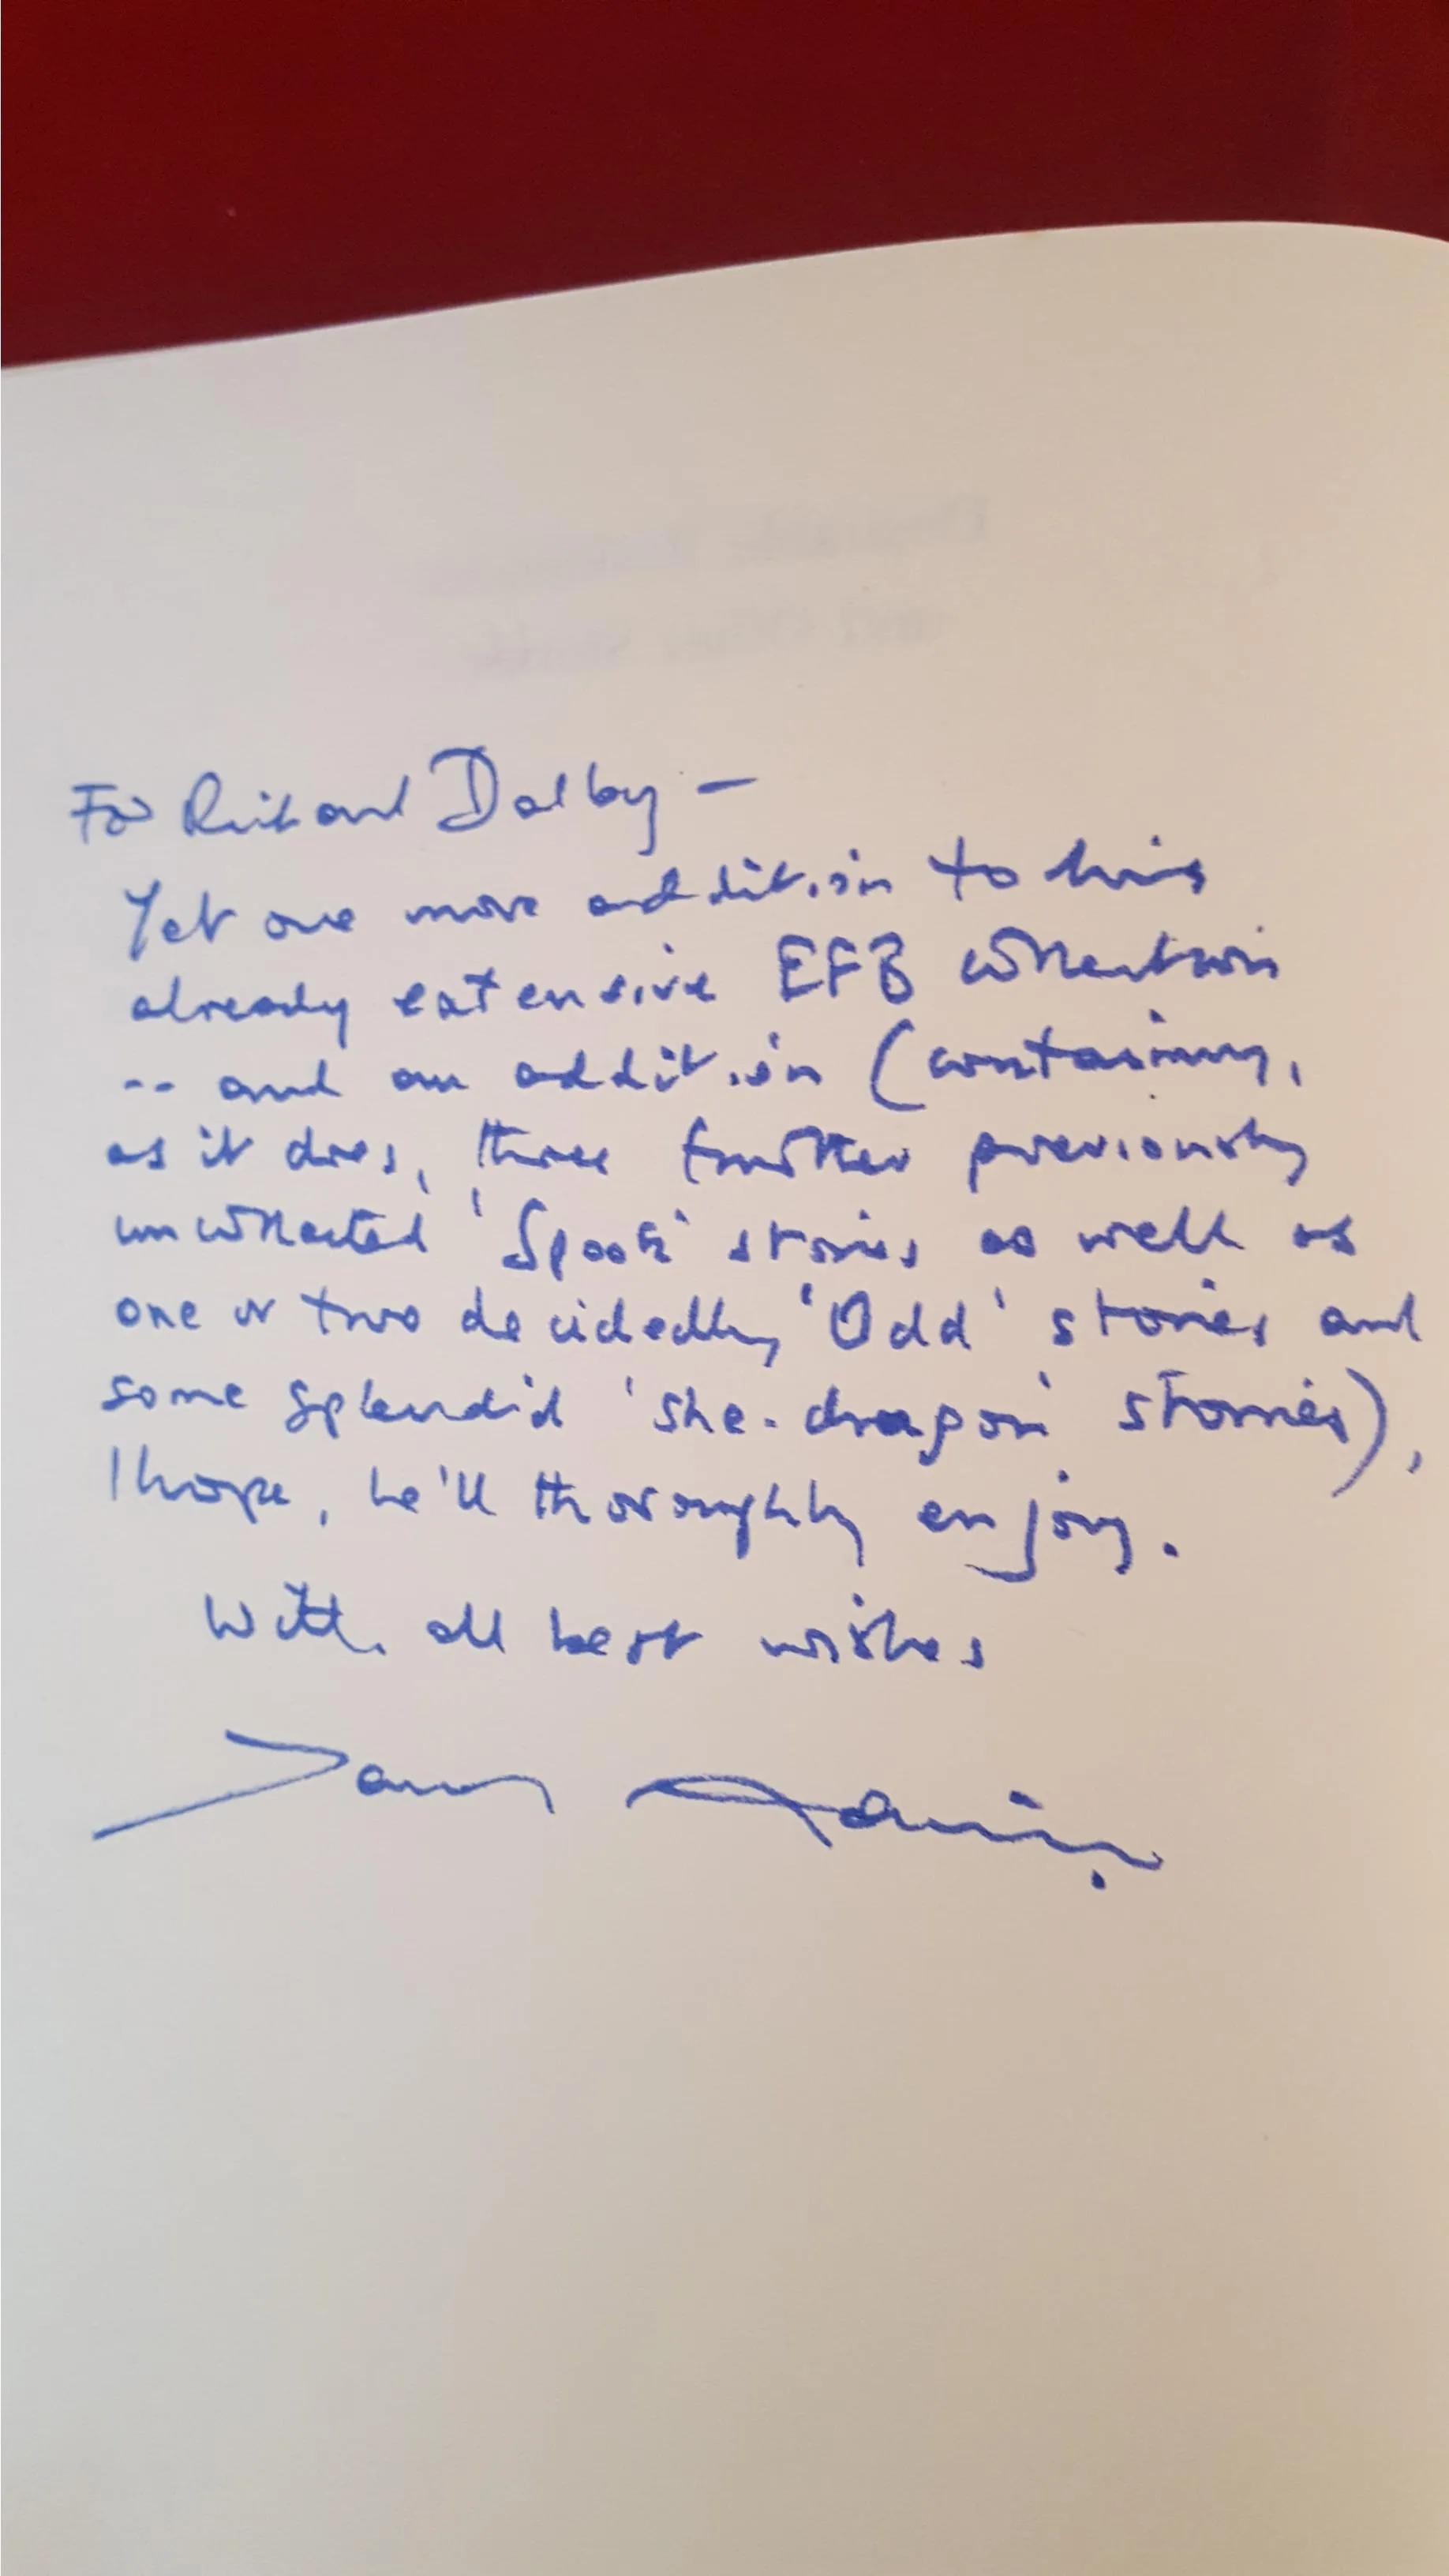 For Richard Dalby –
Yet one more addition to his
already extensive EFB collection
-- and an addition (containing,
as it does, three further previously
uncollected 'Spook' stories as well as
one or two decidedly 'Odd' stories and
some splendid 'she-dragon' stories),
I hope, he'll thoroughly enjoy.
With all best wishes
Jack Adrian.